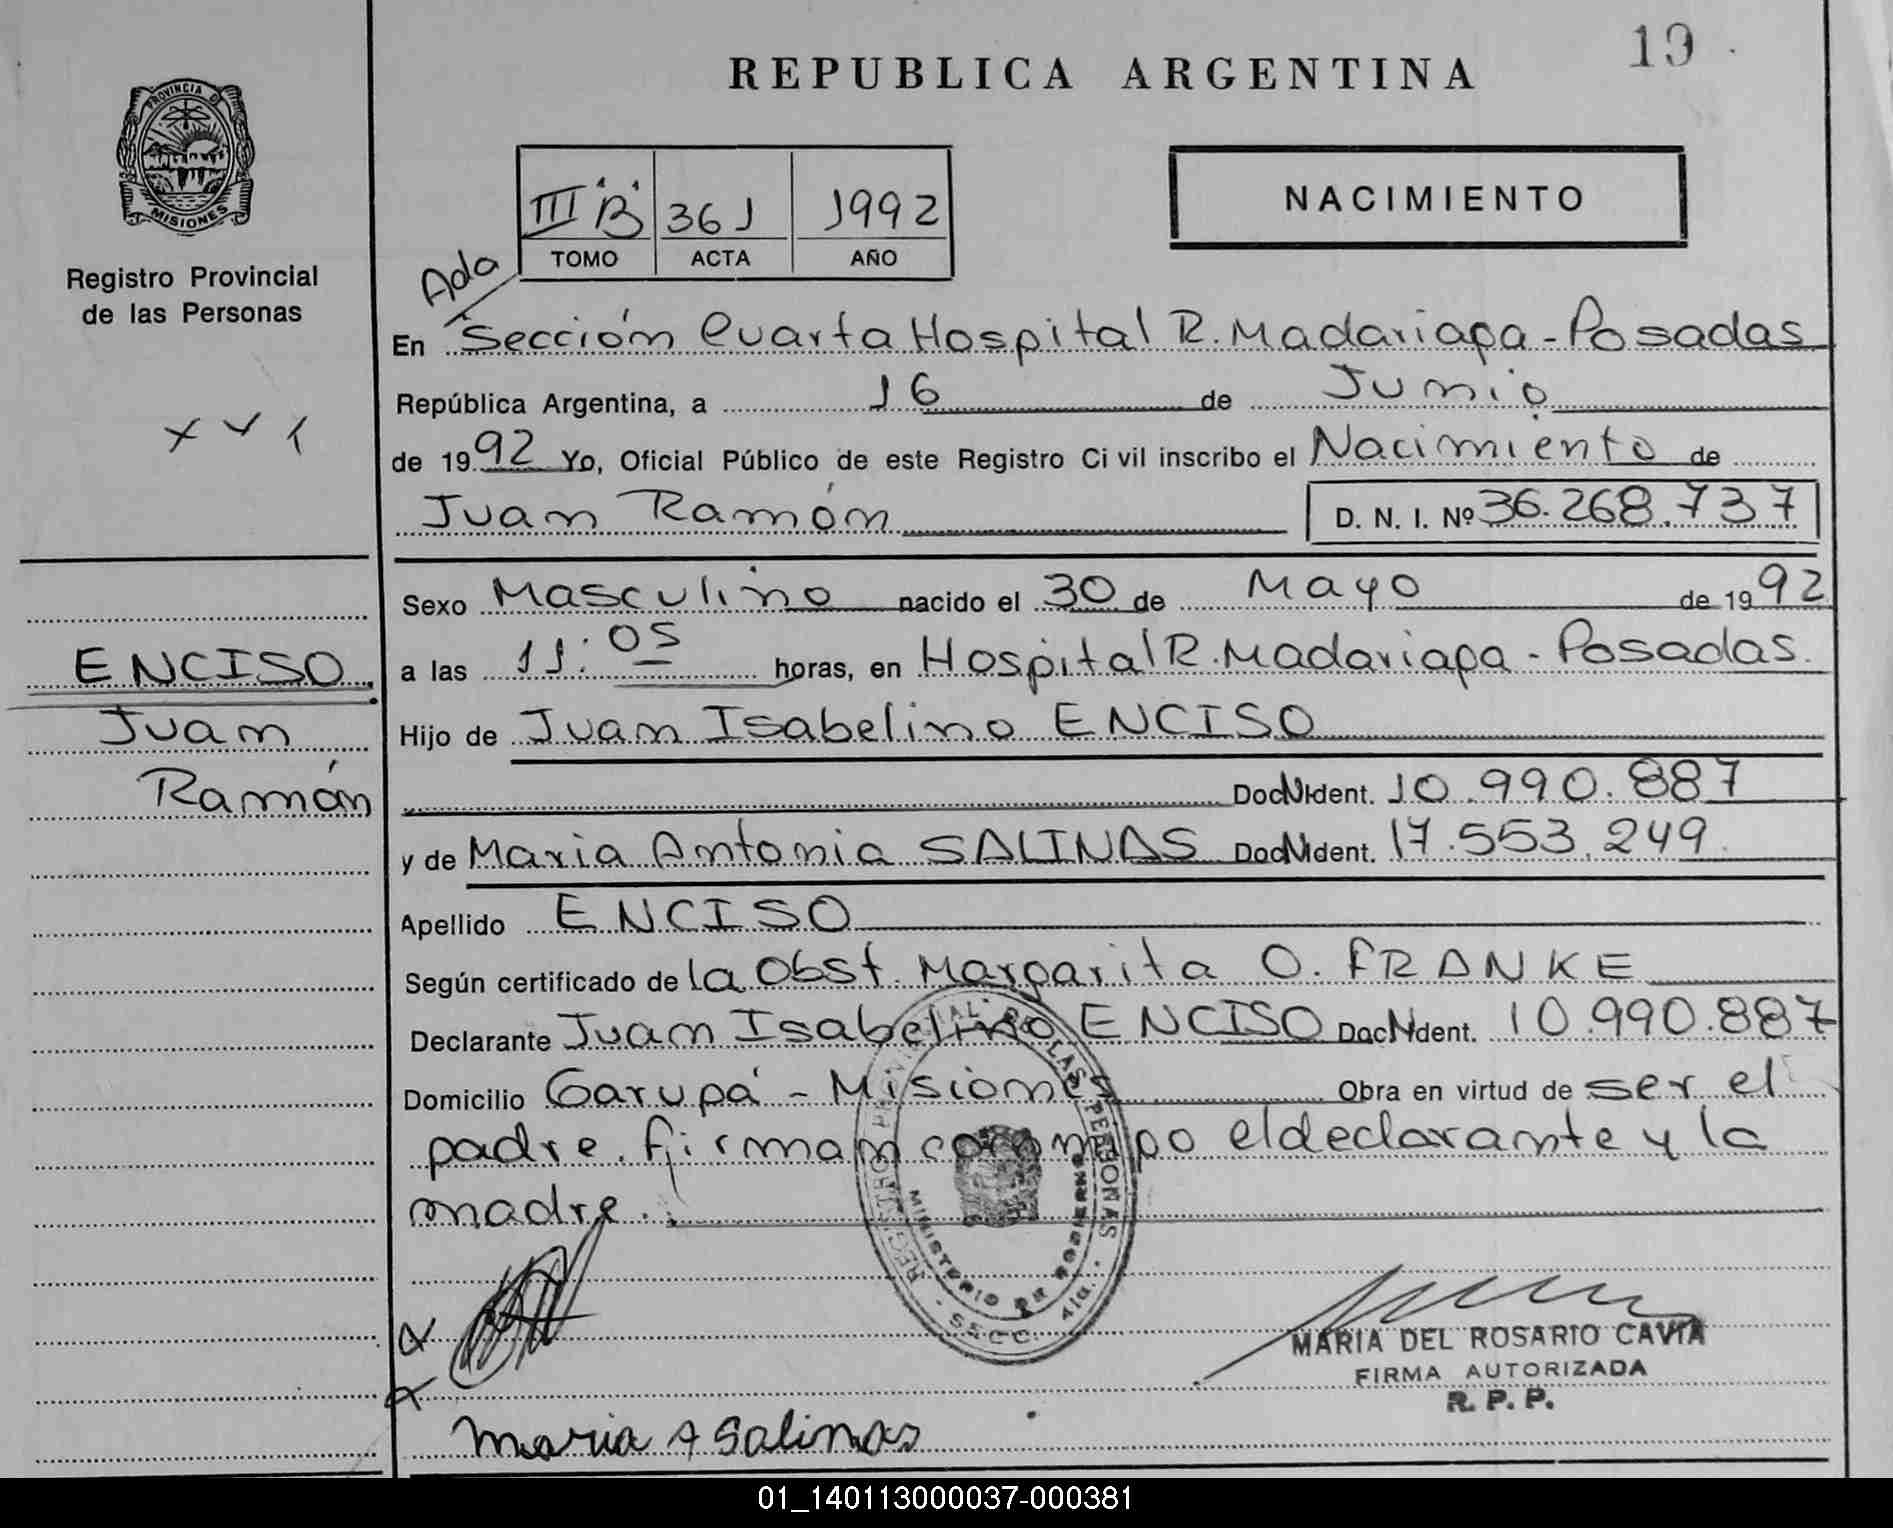 19
REPUBLICA ARGENTINA
PROVINCIA D
MISIONES
Registro Provincial
de las Personas
III "B" 361 1992
TOMO ACTA AÑO
NACIMIENTO
Ada
En Sección Cuarta Hospital R. Madariaga - Posadas
República Argentina, a 16 de Junio
de 1992 Yo, Oficial Público de este Registro Civil inscribo el Nacimiento de
Juan Ramón D. N. I. Nº 36.268.737
Sexo Masculino nacido el 30 de Mayo de 1992
a las 11:05 horas, en Hospital R. Madariaga - Posadas.
Hijo de Juan Isabelino ENCISO
Doc. Ident. 10.990.887
y de Maria Antonia SALINAS Doc. Ident. 17.553.249
Apellido ENCISO
Según certificado de la Obst. Margarita O. FRANKE
Declarante Juan Isabelino ENCISO Doc. Ident. 10.990.887
Domicilio Garupá - Misiones Obra en virtud de ser el
padre. firman conmigo el declarante y la
madre.
ENCISO
Juan
Ramón
REGISTRO PROVINCIAL DE LAS PERSONAS
MINISTERIO DE GOBIERNO
SECC. 4ta.
MARIA DEL ROSARIO CAVIA
FIRMA AUTORIZADA
R. P. P.
Maria A Salinas
01_140113000037-000381